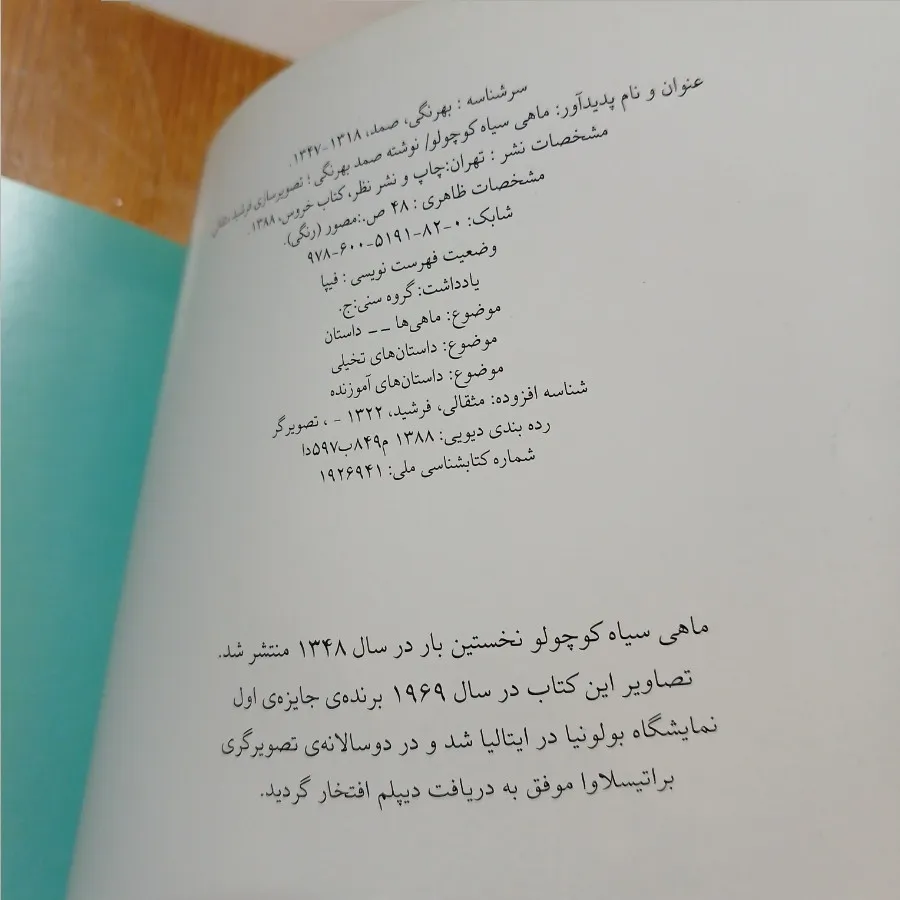 سرشناسه : بهرنگی، صمد، ۱۳۱۸-۱۳۴۷.
عنوان و نام پدیدآور: ماهی سیاه کوچولو/ نوشته صمد بهرنگی ؛ تصویرسازی فرشید مثقالی
مشخصات نشر : تهران:چاپ و نشر نظر، کتاب خروس، ۱۳۸۸.
مشخصات ظاهری : ۴۸ ص.:مصور (رنگی).
شابک: ۰-۸۲-۵۱۹۱-۶۰۰-۹۷۸
وضعیت فهرست نویسی : فیپا
یادداشت: گروه سنی:ج.
موضوع: ماهی‌ها -- داستان
موضوع: داستان‌های تخیلی
موضوع: داستان‌های آموزنده
شناسه افزوده: مثقالی، فرشید، ۱۳۲۲ - ، تصویرگر
رده بندی دیویی: ۱۳۸۸ م۸۴۹ب۵۹۷دا
شماره کتابشناسی ملی: ۱۹۲۶۹۴۱
ماهی سیاه کوچولو نخستین بار در سال ۱۳۴۸ منتشر شد.
تصاویر این کتاب در سال ۱۹۶۹ برنده‌ی جایزه‌ی اول
نمایشگاه بولونیا در ایتالیا شد و در دوسالانه‌ی تصویرگری
براتیسلاوا موفق به دریافت دیپلم افتخار گردید.